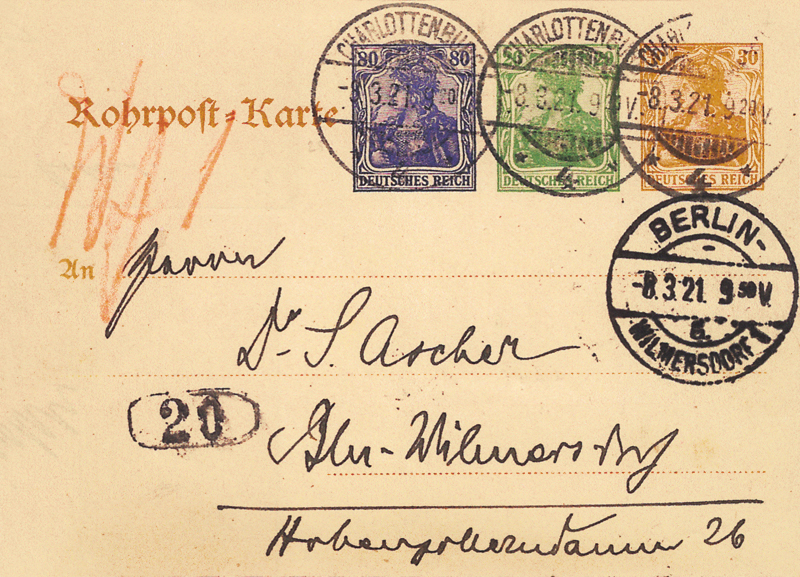 CHARLOTTENBURG
80 80
3.21. 9
DEUTSCHES REICH
CHARLOTTENBU
-8.3.21. 9 V.
DEUTSCHES REICH
4
CHAR
30
-8.3.21. 9 20 V.
DEUTSCHES REICH
4
Rohrpost-Karte
BERLIN-
-8.3.21. 9 50 V.
a.
WILMERSDORF 1
An Herrn
Dr. S. Ascher
20
Bln-Wilmersdorf
Hohenzollerndamm 26